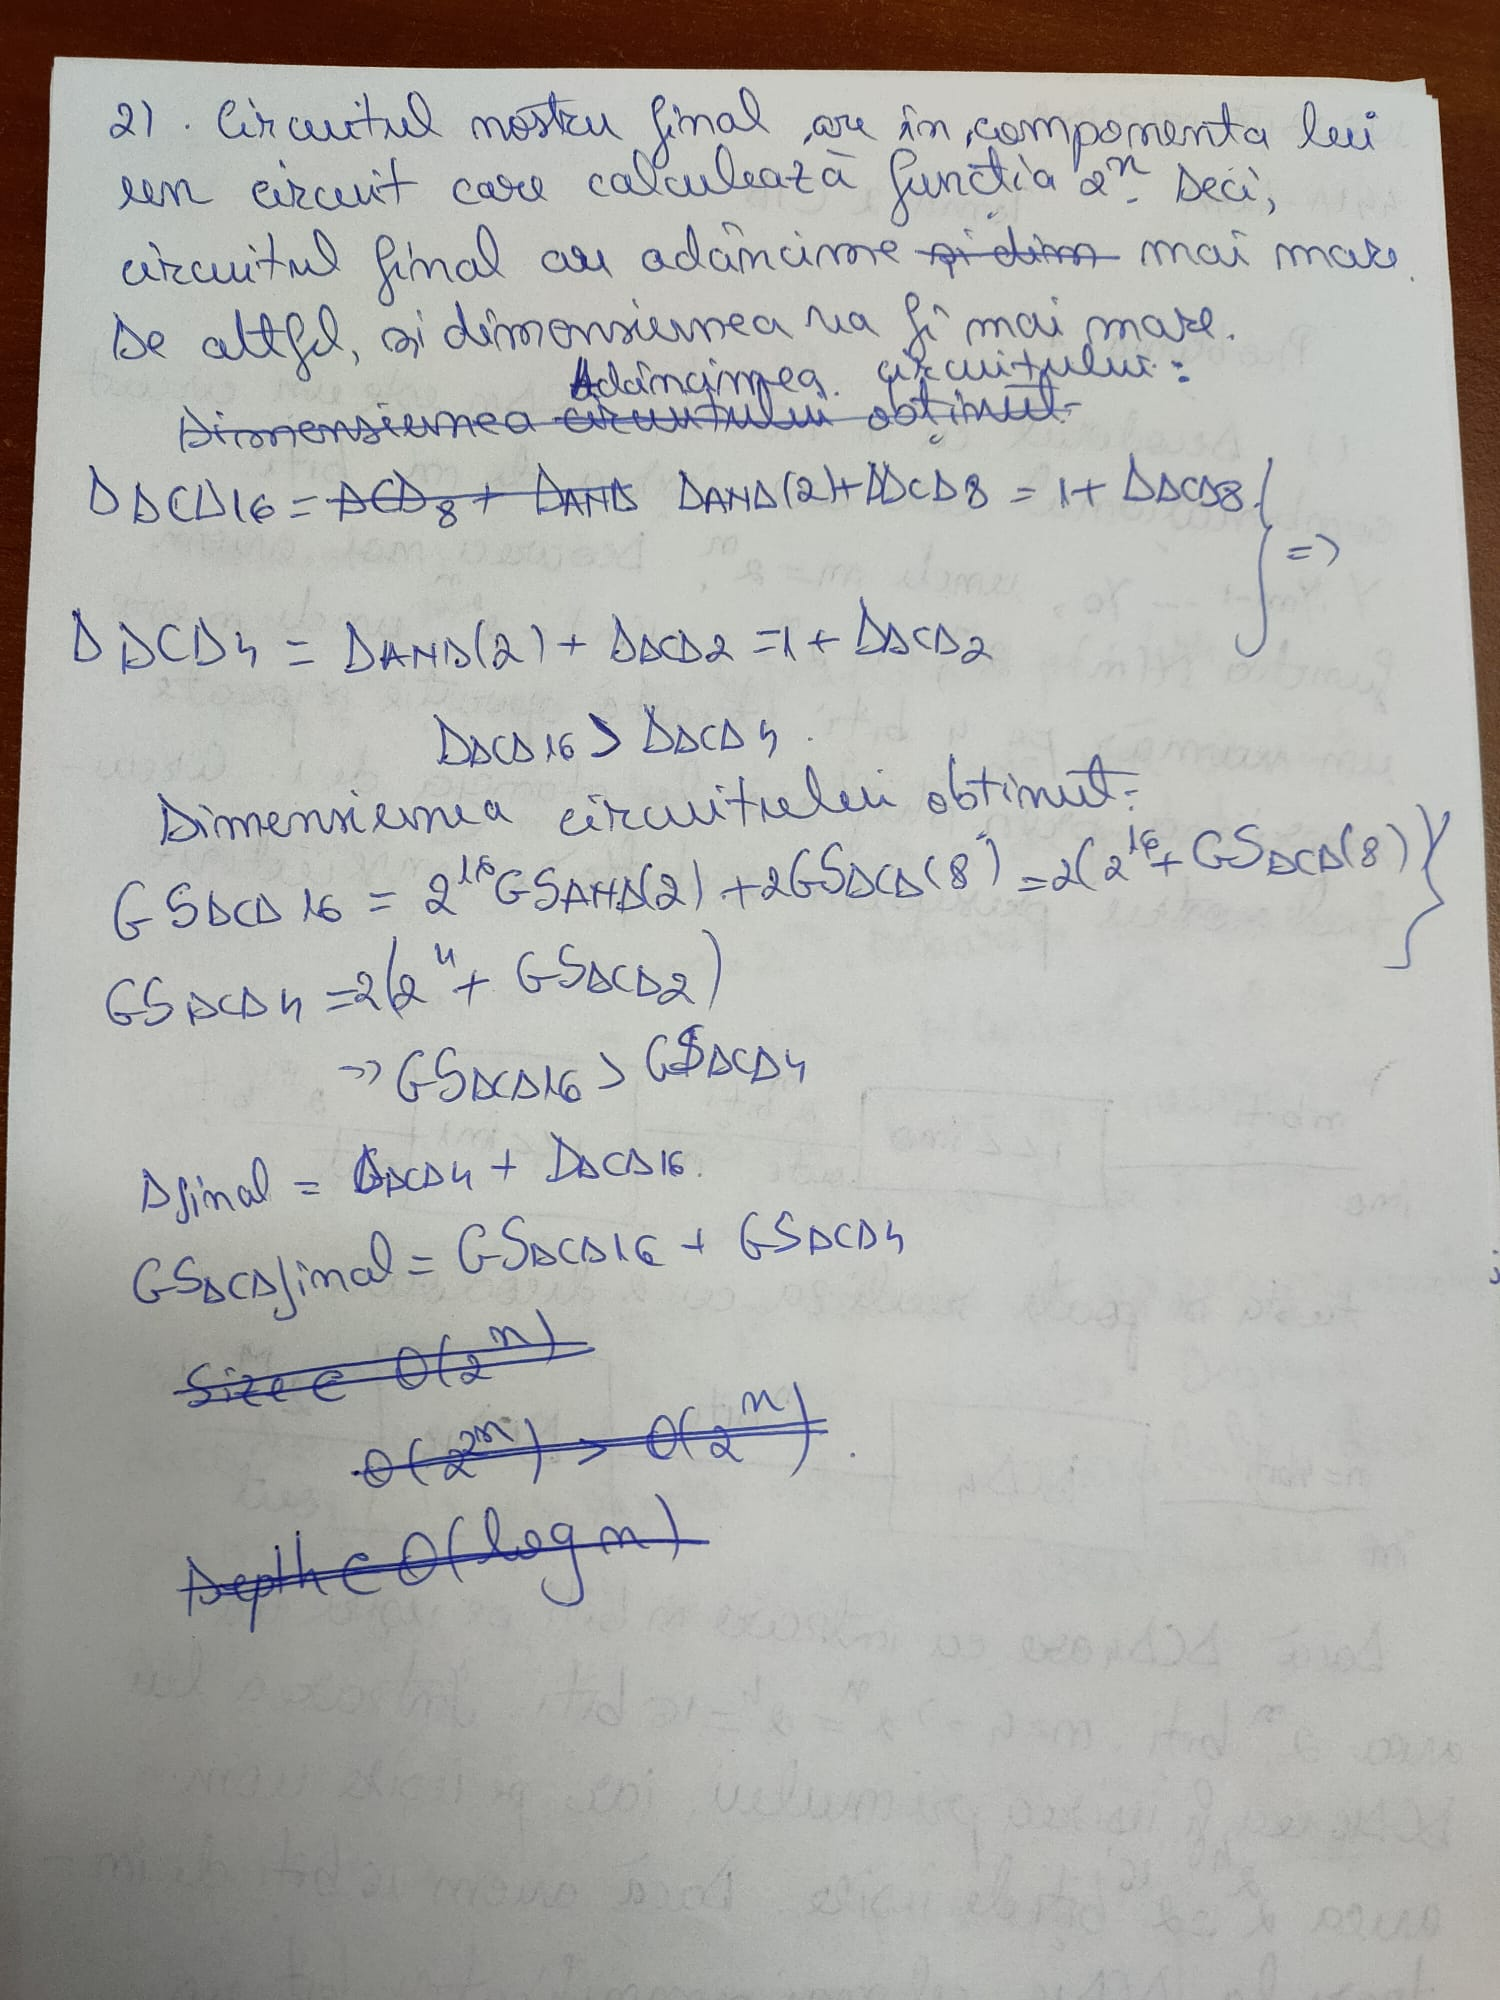 2). Circuitul nostru final are în componenta lui
un circuit care calculează funcția 2^n. Deci,
circuitul final are adâncime și dim mai mare.
De altfel, și dimensiunea va fi mai mare.
Adâncimea circuitului:
Dimensiunea circuitului obținut:
D DCD16 = DCD8 + DAND DAND(2)+DDCD8 = 1+ DDCD8 } =>
D DCD4 = DAND(2) + DDCD2 = 1 + DDCD2
DDCD16 > DDCD4.
Dimensiunea circuitului obtinut:
GSDCD16 = 2^16 GSAND(2) + 2GSDCD(8) = 2(2^16 + GSDCD(8)) }
GSDCD4 = 2(2^4 + GSDCD2)
=> GSDCD16 > GSDCD4
Dfinal = DDCD4 + DDCD16.
GSDCDfinal = GSDCD16 + GSDCD4
Size ∈ O(2^n)
O(2^2^n) > O(2^n).
Depth ∈ O(log n)